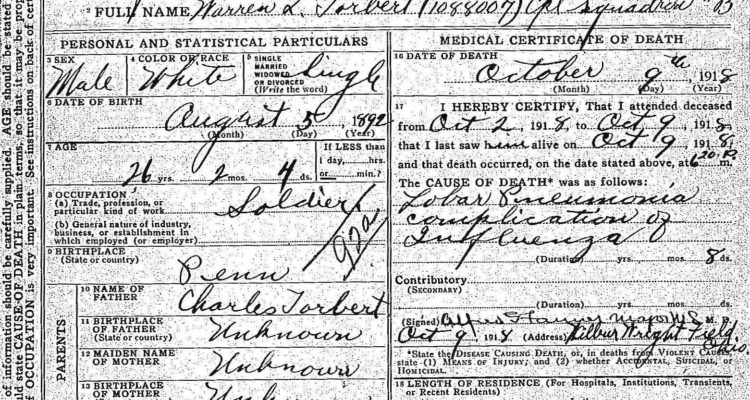 2 FULL NAME Warren L. Torbert (1088007) Cpl Squadron B
PERSONAL AND STATISTICAL PARTICULARS
3 SEX
Male
4 COLOR OR RACE
White
5 SINGLE
MARRIED
WIDOWED
OR DIVORCED
(Write the word)
Single
6 DATE OF BIRTH
August 5, 1892
(Month) (Day) (Year)
7 AGE
26 yrs. 2 mos. 4 ds.
If LESS than
1 day,....hrs.
or......min.?
8 OCCUPATION
(a) Trade, profession, or
particular kind of work
Soldier
(b) General nature of industry,
business, or establishment in
which employed (or employer)
9 BIRTHPLACE
(State or country)
Penn
PARENTS
10 NAME OF
FATHER
Charles Torbert
11 BIRTHPLACE
OF FATHER
(State or country)
Unknown
12 MAIDEN NAME
OF MOTHER
Unknown
13 BIRTHPLACE
OF MOTHER
MEDICAL CERTIFICATE OF DEATH
16 DATE OF DEATH
October 9th, 1918
(Month) (Day) (Year)
17 I HEREBY CERTIFY, That I attended deceased
from Oct 2, 1918, to Oct 9, 1918,
that I last saw him alive on Oct 9, 1918,
and that death occurred, on the date stated above, at 6:20 P. m.
The CAUSE OF DEATH* was as follows:
Lobar Pneumonia
complication of
Influenza
(Duration) yrs. mos. 8 ds.
Contributory
(SECONDARY)
(Duration) yrs. mos. ds.
(Signed) M. D.
Oct 9, 1918 (Address) Wilbur Wright Field
Ohio.
*State the DISEASE CAUSING DEATH, or, in deaths from VIOLENT CAUSES,
state (1) MEANS OF INJURY; and (2) whether ACCIDENTAL, SUICIDAL, or
HOMICIDAL.
18 LENGTH OF RESIDENCE (For Hospitals, Institutions, Transients,
or Recent Residents)
of information should be carefully supplied. AGE should be stated
uld state CAUSE OF DEATH in plain terms, so that it may be prop
f OCCUPATION is very important. See instructions on back of cer